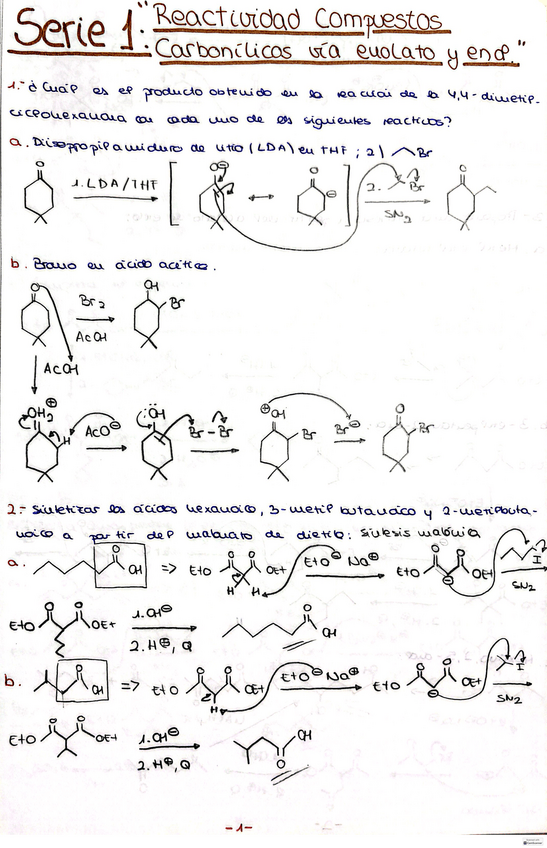 Serie 1: "Reactividad Compuestos
Carbonílicos vía enolato y enol."
1.- ¿Cuál es el producto obtenido en la reacción de la 4,4-dimetil-
ciclohexanona con cada uno de los siguientes reactivos?
a. Diisopropilamiduro de litio (LDA) en THF; 2) Br
O
1. LDA/THF
O⊖
O
⊖
2. Br
SN2
O
b. Bromo en ácido acético.
O
Br2
AcOH
OH
Br
AcOH
OH2
⊕
H
AcO⊖
:ÖH
Br-Br
⊕
OH
Br
Br⊖
O
Br
2.- Sintetizar los ácidos hexanoico, 3-metil butanoico y 2-metilbuta-
noico a partir del malonato de dietilo: síntesis malónica
a.
O
OH
=>
EtO
O
O
OEt
H
H
EtO⊖ Na⊕
EtO
O
O
OEt
⊖
I
SN2
EtO
O
O
OEt
1. OH⊖
2. H⊕, Q
O
OH
b.
O
OH
=>
EtO
O
O
OEt
H
EtO⊖ Na⊕
EtO
O
O
OEt
⊖
I
SN2
EtO
O
O
OEt
1. OH⊖
2. H⊕, Q
OH
O
-1-